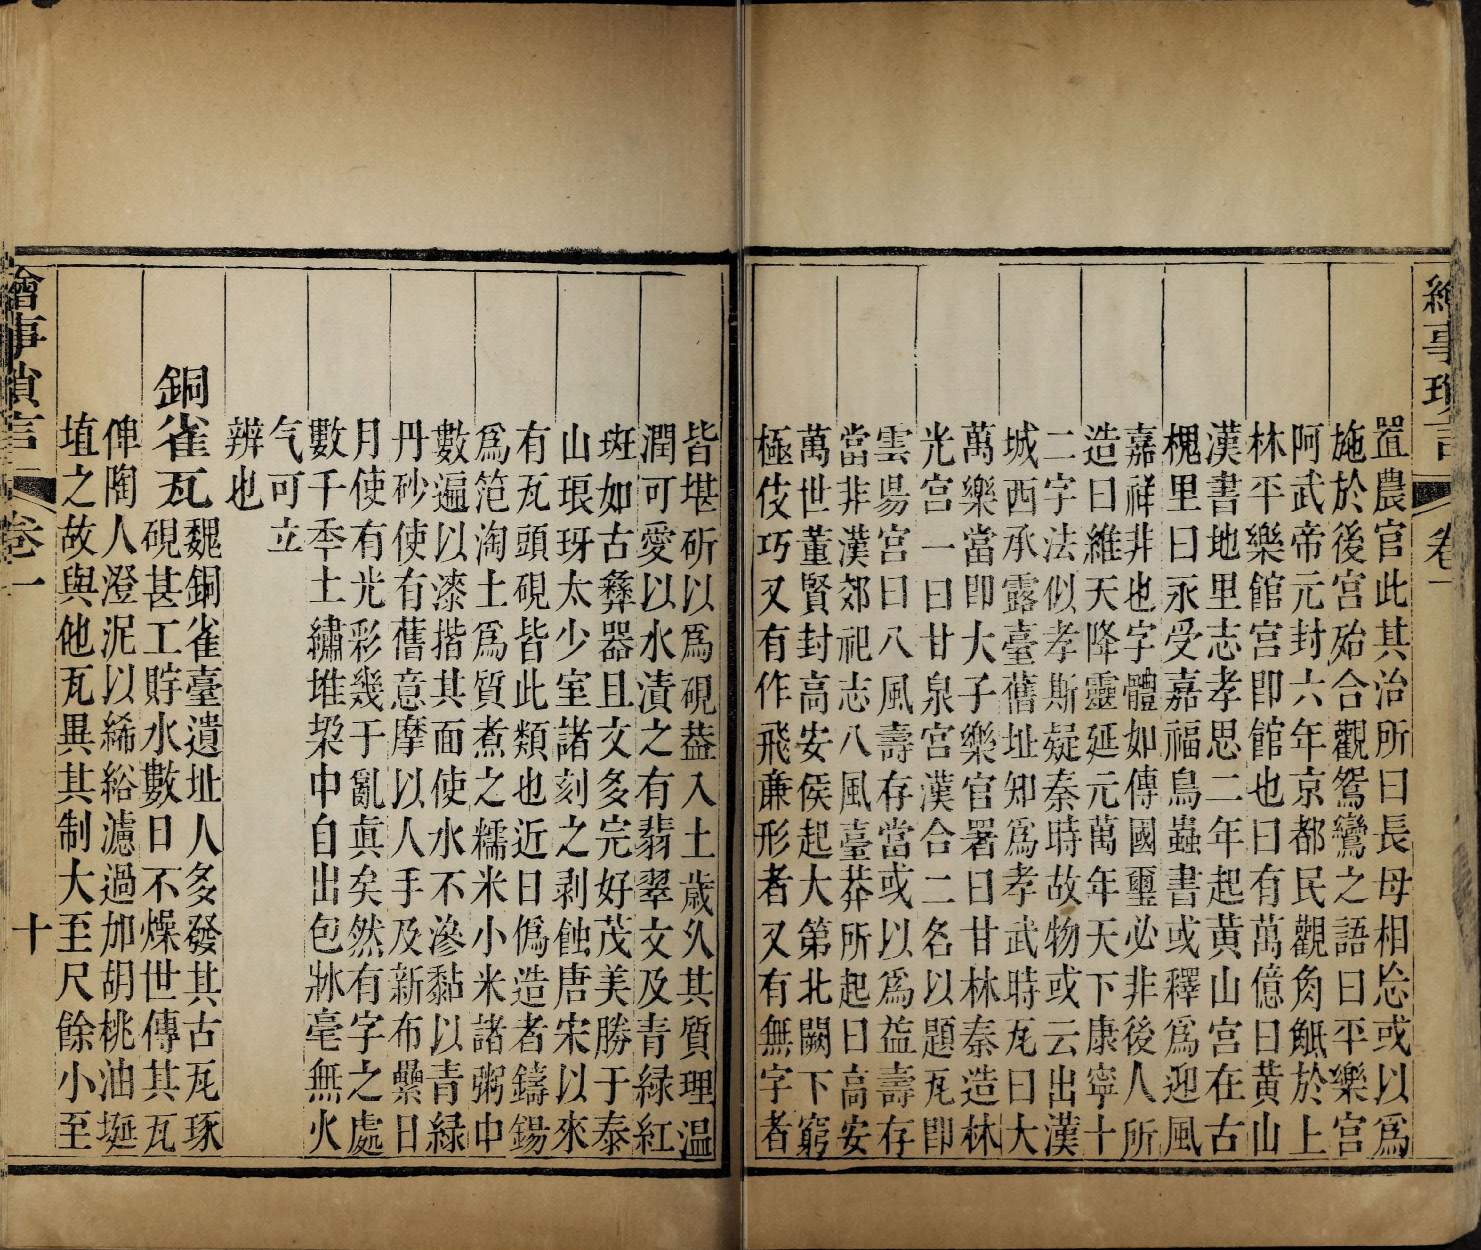 繪事瑣言 卷一
置農官此其治所曰長母相忩或以爲
施於後宮殆合觀鴛鸞之語曰平樂宮
阿武帝元封六年京都民觀角觝於上
林平樂館宮卽館也曰有萬億曰黃山
漢書地里志孝思二年起黃山宮在古
槐里曰永受嘉福鳥蟲書或釋爲迎風
嘉祥非也字體如傳國璽必非後人所
造曰維天降靈延元萬年天下康寧十
二字法似孝斯疑秦時故物或云出漢
城西承露臺舊址知爲孝武時瓦曰大
萬樂當卽大子樂官署曰甘林秦造林
光宮一曰甘泉宮漢合二名以題瓦卽
雲昜宮曰八風壽存當或以爲益壽存
當非漢郊祀志八風臺莽所起曰高安
萬世董賢封高安侯起大第北闕下窮
極伎巧又有作飛亷形者又有無字者
皆堪斫以爲硯葢入土歲久其質理温
潤可愛以水漬之有翡翠文及青緑紅
斑如古彝器且文多完好茂美勝于泰
山琅玡太少室諸刻之剥蝕唐宋以來
有瓦頭硯皆此類也近日僞造者鑄錫
爲笵淘土爲質煮之糯米小米諸粥中
數遍以漆揩其面使水不滲黏以青緑
丹砂使有舊意摩以人手及新布櫐日
月使有光彩幾于亂眞矣然有字之處
數千年土繡堆㮃中自出包牀毫無火
气可立
辨也
銅雀瓦
魏銅雀臺遺址人多發其古瓦琢
硯甚工貯水數日不燥世傳其瓦
俾陶人澄泥以絺綌濾過加胡桃油埏
埴之故與他瓦異其制大至尺餘小至
繪事瑣言 卷一 十